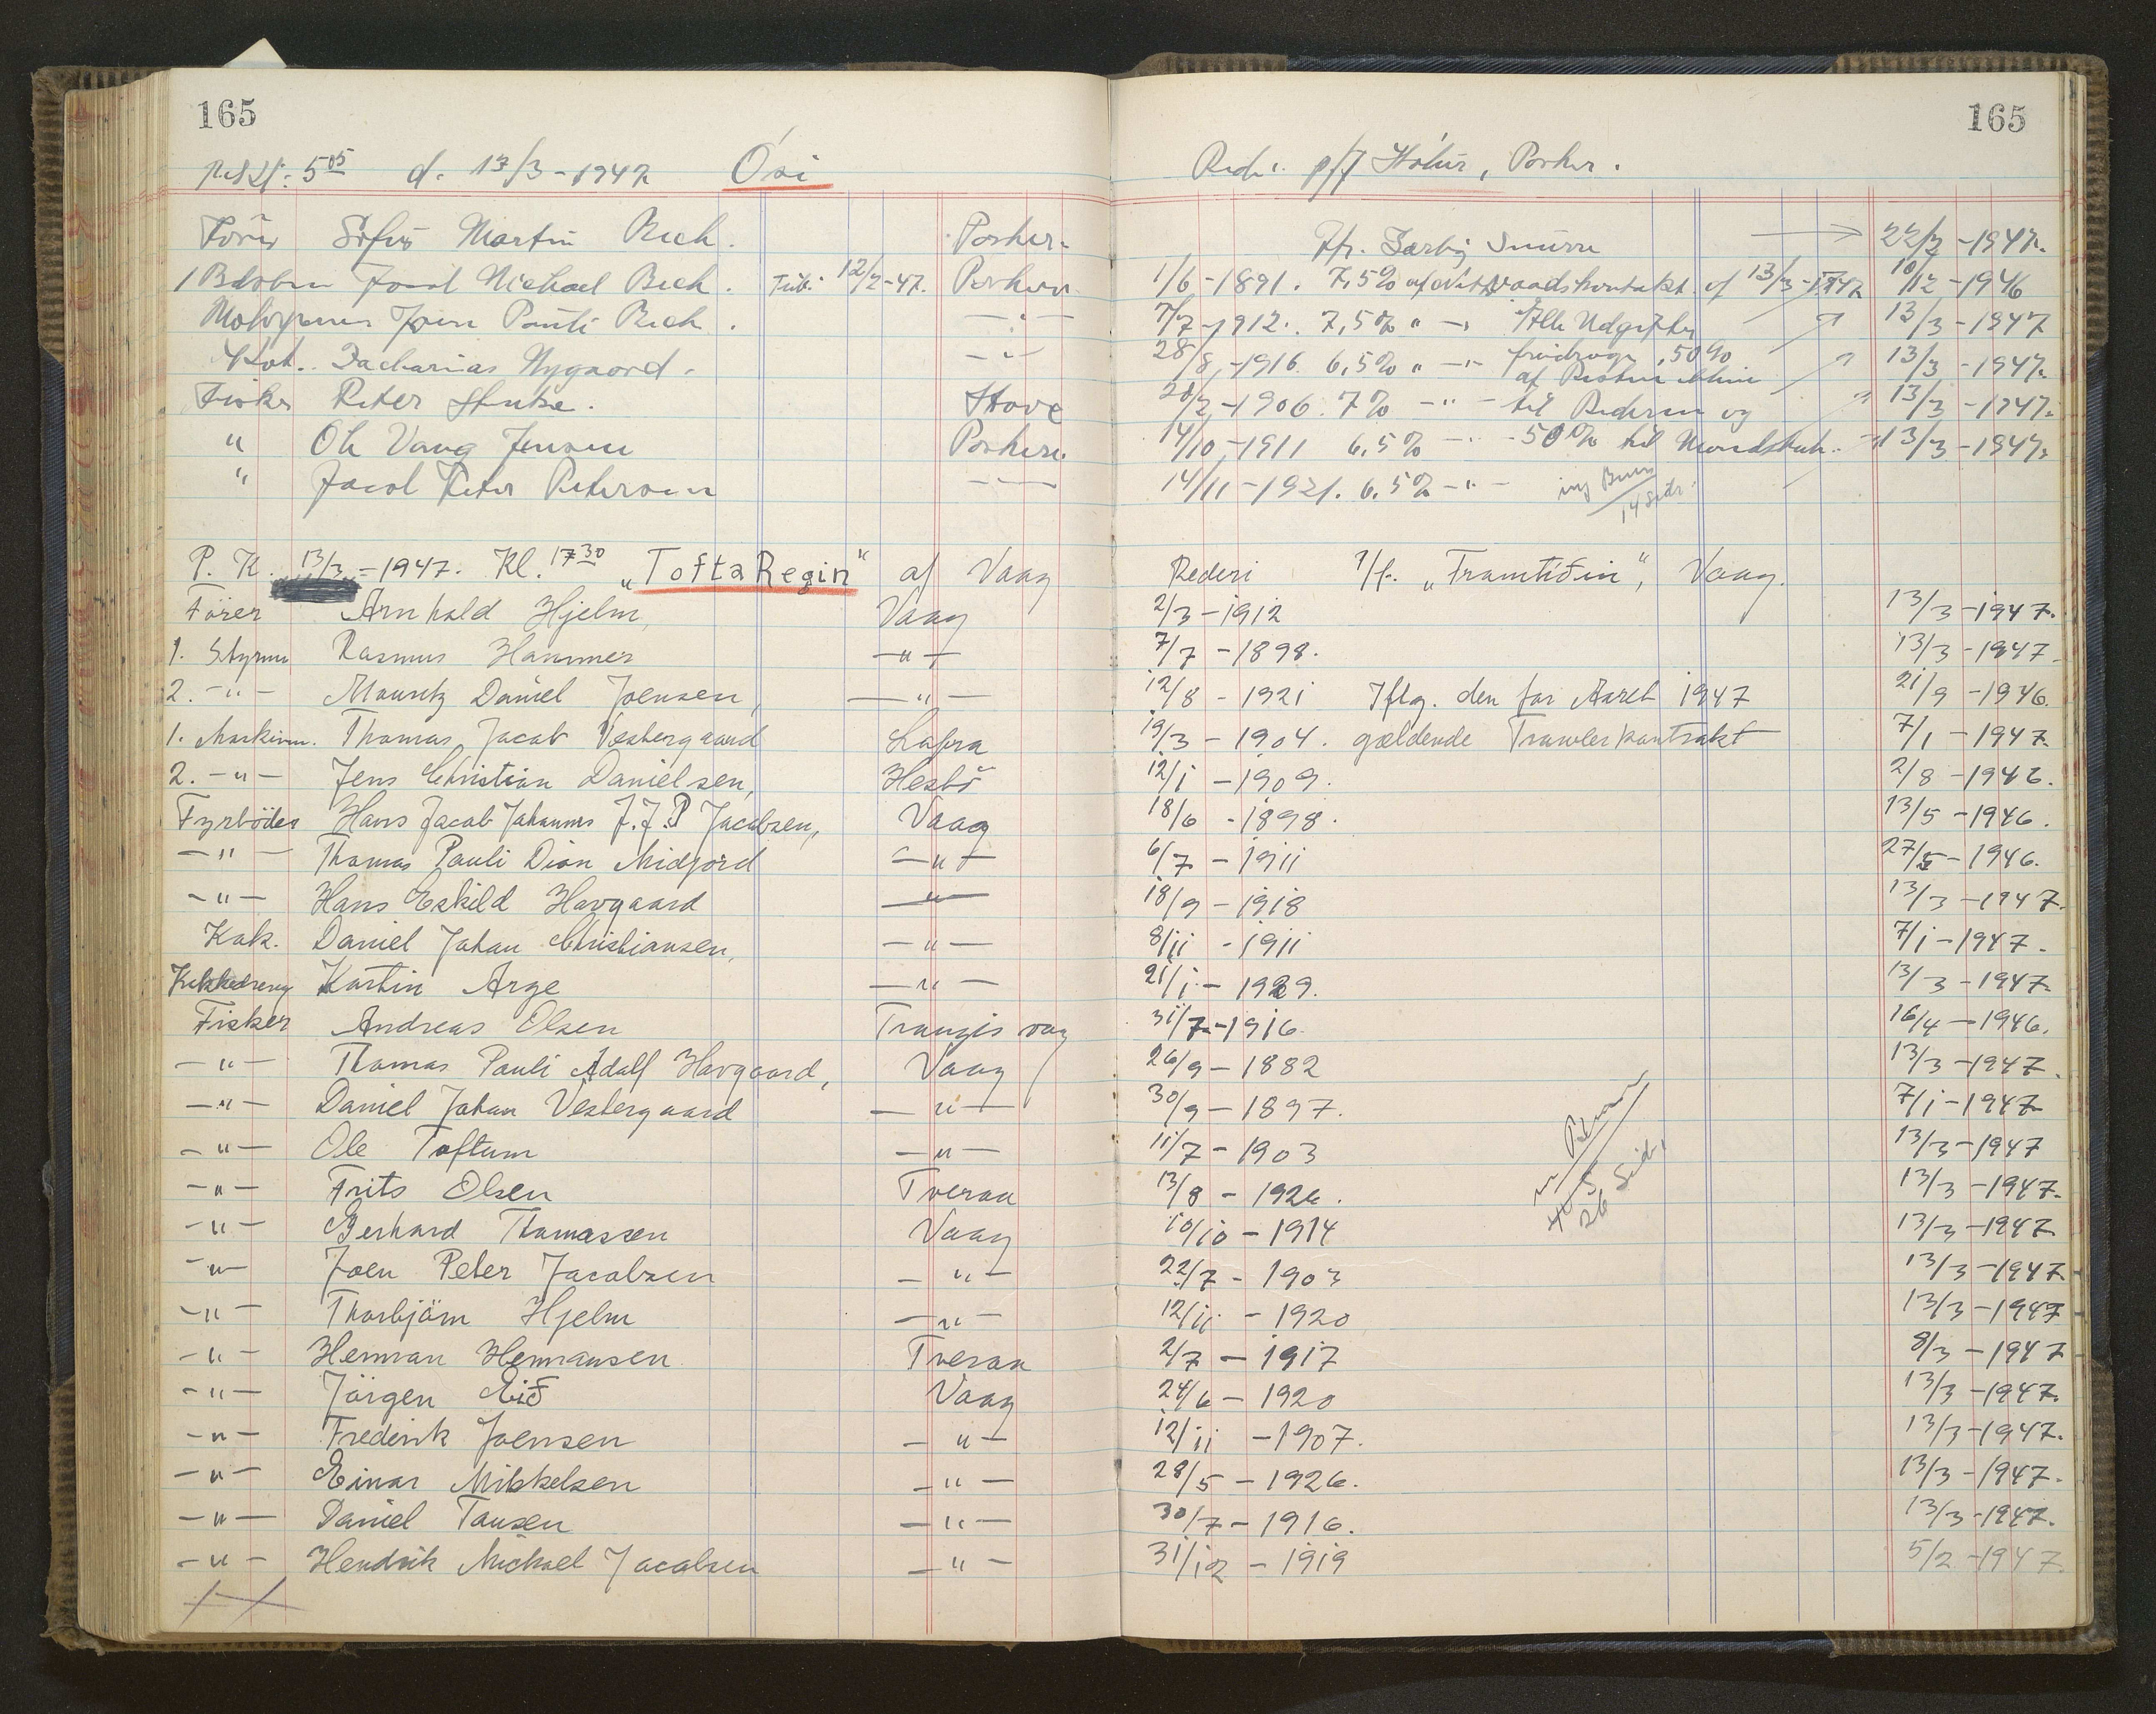 165 165
d. 13/3 - 1947 Ósi p/f , Porker.
Sofus Martin Bech. Porker. 22/2 - 1947.
1 Michael Bech. 12/2-47. Porkere 1/6 - 1891. 7,5% af 13/3 - 1947 10/12 - 1946
Joen Pauli Bech. — " — 7/7 - 1912. 7,5% " — " Alle Udgifter 13/3 - 1947
Kok. Zacharias Nygaard. — " — 28/8 - 1916. 6,5% " — " — fradrages, 50% 13/3 - 1947.
af
Fisker Peter . Hove 28/2 - 1906. 7% — " — til Rederen og " 13/3 - 1947.
" Ole Vang Jensen Porkere. 14/10 - 1911 6,5% — " — 50% til Mandskab. 13/3 - 1947.
" Jacob Peter Petersen — " — 14/11 - 1921. 6,5% — " —
P. K. 13/3 - 1947. Kl. 17 30 „Tofta Regin" af Vaag Rederi P/f. „Framtíðin", Vaag.
Förer Arnhold Hjelm, Vaag 2/3 - 1912 13/3 - 1947.
1. Styrm Rasmus Hammer — " — 7/7 - 1898. 13/3 - 1947
2. — " — Mouritz Daniel Joensen, — " — 12/8 - 1921 Iflg. den for Aaret 1947 21/9 - 1946.
1. Maskinm. Thomas Jacob Vestergaard Lopra 19/3 - 1904. gældende Trawlerkontrakt 7/1 - 1947.
2. — " — Jens Christian Danielsen, Hesbö 12/1 - 1909. 2/8 - 1946.
Fyrböder Hans Jacob Johannes J.J.P Jacobsen, Vaag 18/6 - 1898. 13/5 - 1946.
— " — Thomas Pauli Dion Midjord — " — 6/7 - 1911 27/5 - 1946.
— " — Hans Eskild Hovgaard — " — 18/9 - 1918 13/3 - 1947.
Kok. Daniel Johan Christiansen, — " — 8/11 - 1911 7/1 - 1947.
Kokkedreng Kartin Arge — " — 21/1 - 1929. 13/3 - 1947.
Fisker Andreas Olsen Trangisvag 31/7 - 1916. 16/4 - 1946.
— " — Thomas Pauli Adolf Hovgaard, Vaag 26/9 - 1882 13/3 - 1947.
— " — Daniel Johan Vestergaard — " — 30/9 - 1897. 7/1 - 1947
— " — Ole Toftum — " — 11/7 - 1903 13/3 - 1947
— " — Frits Olsen Tveraa 13/8 - 1926. 13/3 - 1947.
— " — Gerhard Thomassen Vaag 10/10 - 1914 13/3 - 1947
— " — Joen Peter Jacobsen — " — 22/7 - 1903 13/3 - 1947
— " — Thorbjörn Hjelm — " — 12/11 - 1920 13/3 - 1947
— " — Herman Hermansen Tveraa 2/7 - 1917 8/3 - 1947
— " — Jörgen Eið Vaag 24/6 - 1920 13/3 - 1947.
— " — Frederik Joensen — " — 12/11 - 1907. 13/3 - 1947.
— " — Einar Mikkelsen — " — 28/5 - 1926. 13/3 - 1947.
— " — Daniel Tausen — " — 30/7 - 1916. 13/3 - 1947.
— " — Hendrik Michael Jacobsen — " — 31/12 - 1919 5/2 - 1947.